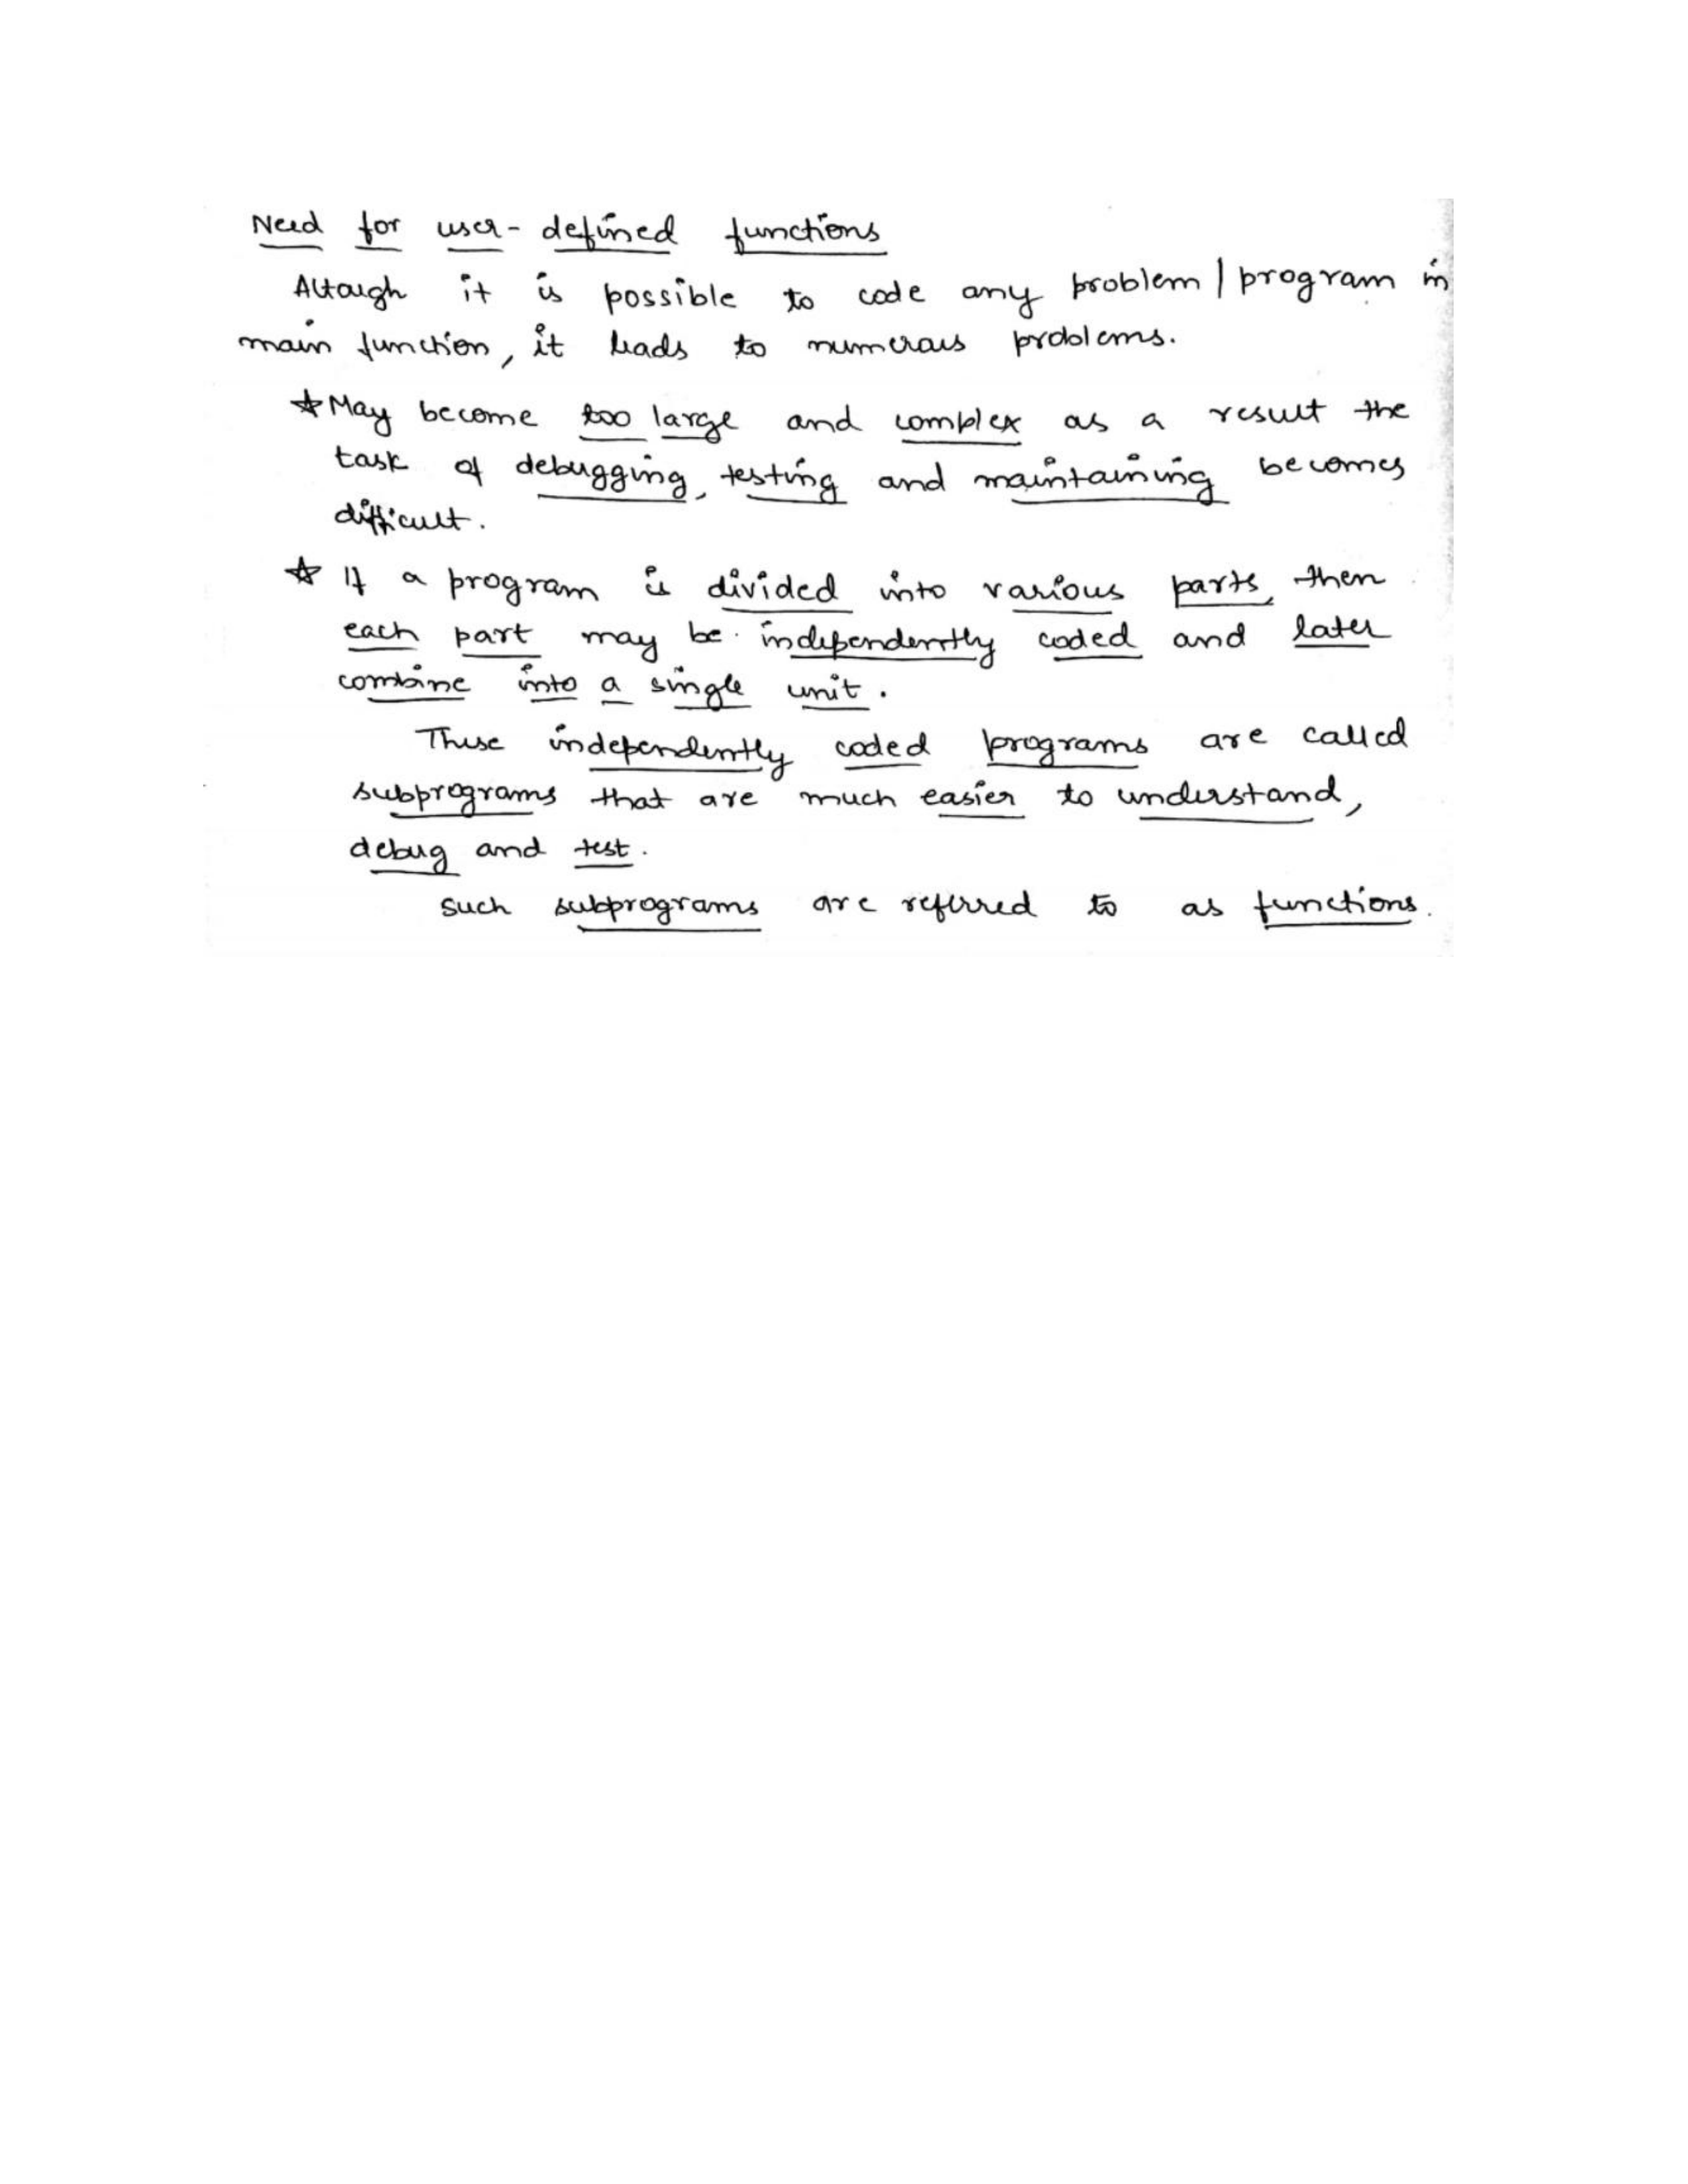 Need for user-defined functions
Altough it is possible to code any problem/program in
main function, it leads to numerous problems.
☆ May become too large and complex as a result the
task of debugging, testing and maintaining becomes
difficult.
☆ If a program is divided into various parts, then
each part may be independently coded and later
combine into a single unit.
These independently coded programs are called
subprograms that are much easier to understand,
debug and test.
Such subprograms are referred to as functions.